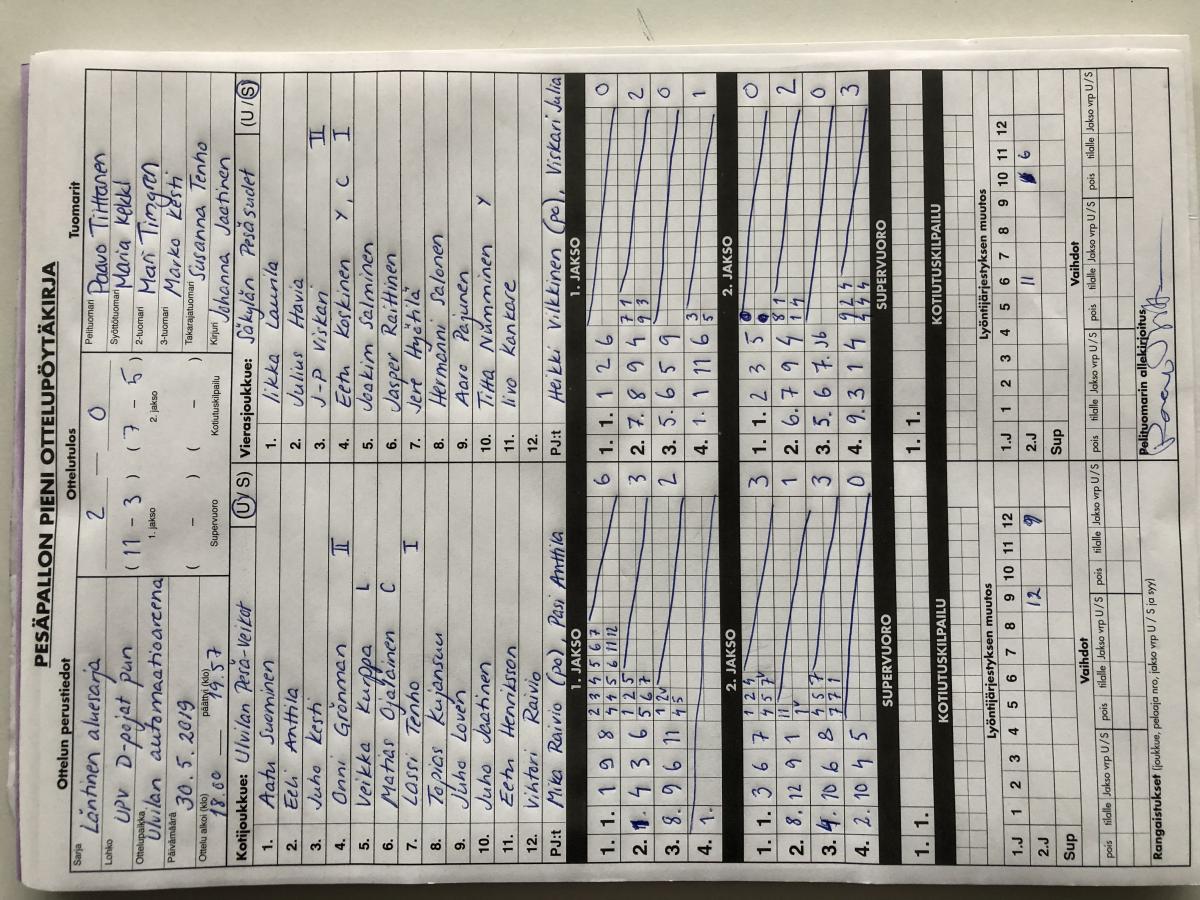 PESÄPALLON PIENI OTTELUPÖYTÄKIRJA
Ottelun perustiedot
Sarja
Läntinen aluesarja
Lohko
UPV D-pojat pun
Ottelupaikka
Ulvilan automaatioareena
Päivämäärä
30.5.2019
Ottelu alkoi (klo) päättyi (klo)
18.00 19.57
Ottelutulos
2 — 0
( 11 - 3 ) ( 7 - 5 )
1. jakso 2. jakso
( - ) ( - )
Supervuoro Kotiutuskilpailu
Tuomarit
Pelituomari Paavo Tiittanen
Syöttötuomari Maria Kekki
2-tuomari Mari Timgren
3-tuomari Marko Kesti
Takarajatuomari Susanna Tenho
Kirjuri Johanna Jaatinen
Kotijoukkue: Ulvilan Pesä-Veikot (U / S)
1. Aatu Suominen
2. Eeli Anttila
3. Juho Kesti
4. Onni Grönman II
5. Veikka Kurppa L
6. Matias Ojalainen C
7. Lassi Tenho I
8. Topias Kujansuu
9. Juho Lovén
10. Juho Jaatinen
11. Eetu Henriksson
12. Vihtori Raivio
PJ:t Mika Raivio (po), Pasi Anttila
Vierasjoukkue: Säkylän Pesäsudet (U / S)
1. Iikka Launila
2. Julius Havia
3. J-P Viskari II
4. Eetu Koskinen Y, C I
5. Joakim Salminen
6. Jasper Raittinen
7. Jere Hyätilä
8. Hermanni Salonen
9. Aaro Pajunen
10. Titta Numminen Y
11. Iivo Kankare
12.
PJ:t Heikki Vilkkinen (po), Viskari Julia
1. JAKSO
1. 1. 1 9 8 2 3 4 5 6 7 6
4 4 5 6 11 12
2. 4 3 6 1 2 5 3
5 6 7
3. 8. 9 6 11 2
4 5
4. 1.
1. JAKSO
1. 1. 1 2 6 0
2. 7. 8 9 4 7 1 2
9 3
3. 5. 6 5 9 0
4. 1. 1 11 6 3 1
5
2. JAKSO
1. 1. 3 6 7 1 2 4 3
4 5 7
2. 8. 12 9 1 11 1
3. 4. 10 6 8 4 5 7 3
7 7 1
4. 2. 10 4 5 0
2. JAKSO
1. 1. 2 3 5 0
2. 6. 7 9 4 8 1 2
1 4
3. 5. 6 7. 0
4. 9. 3 1 4 9 2 4 3
4 4 4
SUPERVUORO
1. 1.
SUPERVUORO
1. 1.
KOTIUTUSKILPAILU
KOTIUTUSKILPAILU
Lyöntijärjestyksen muutos
1.J 1 2 3 4 5 6 7 8 9 10 11 12
2.J 12 9
Sup
Lyöntijärjestyksen muutos
1.J 1 2 3 4 5 6 7 8 9 10 11 12
2.J 11 6
Sup
Vaihdot
pois tilalle Jakso vrp U/S pois tilalle Jakso vrp U/S pois tilalle Jakso vrp U/S
Vaihdot
pois tilalle Jakso vrp U/S pois tilalle Jakso vrp U/S pois tilalle Jakso vrp U/S
Rangaistukset (joukkue, pelaaja nro, jakso vrp U / S ja syy)
Pelituomarin allekirjoitus